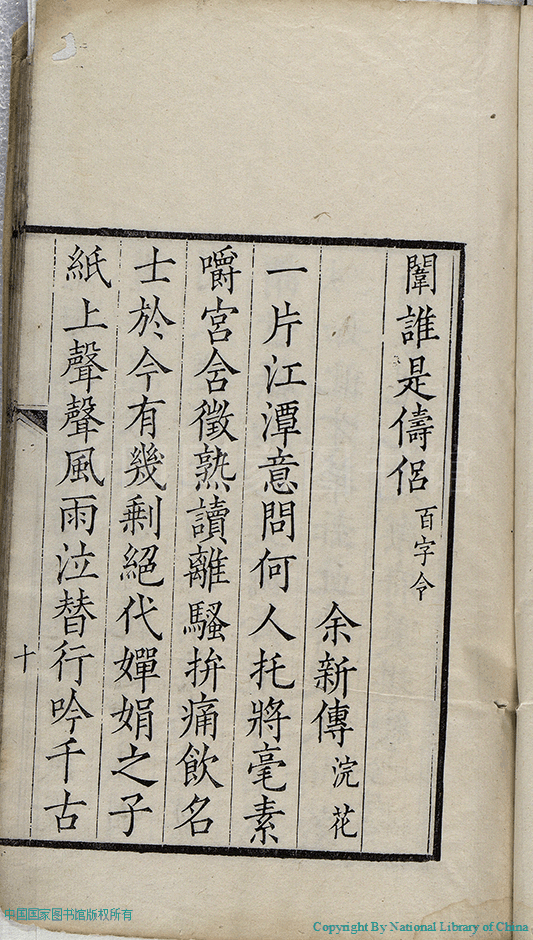 闈誰是儔侶百字令
余新傳浣花
一片江潭意問何人托將毫素
嚼宮含徵熟讀離騷拚痛飲名
士於今有幾剩絕代嬋娟之子
紙上聲聲風雨泣替行吟千古
十
中国国家图书馆版权所有
Copyright By National Library of China